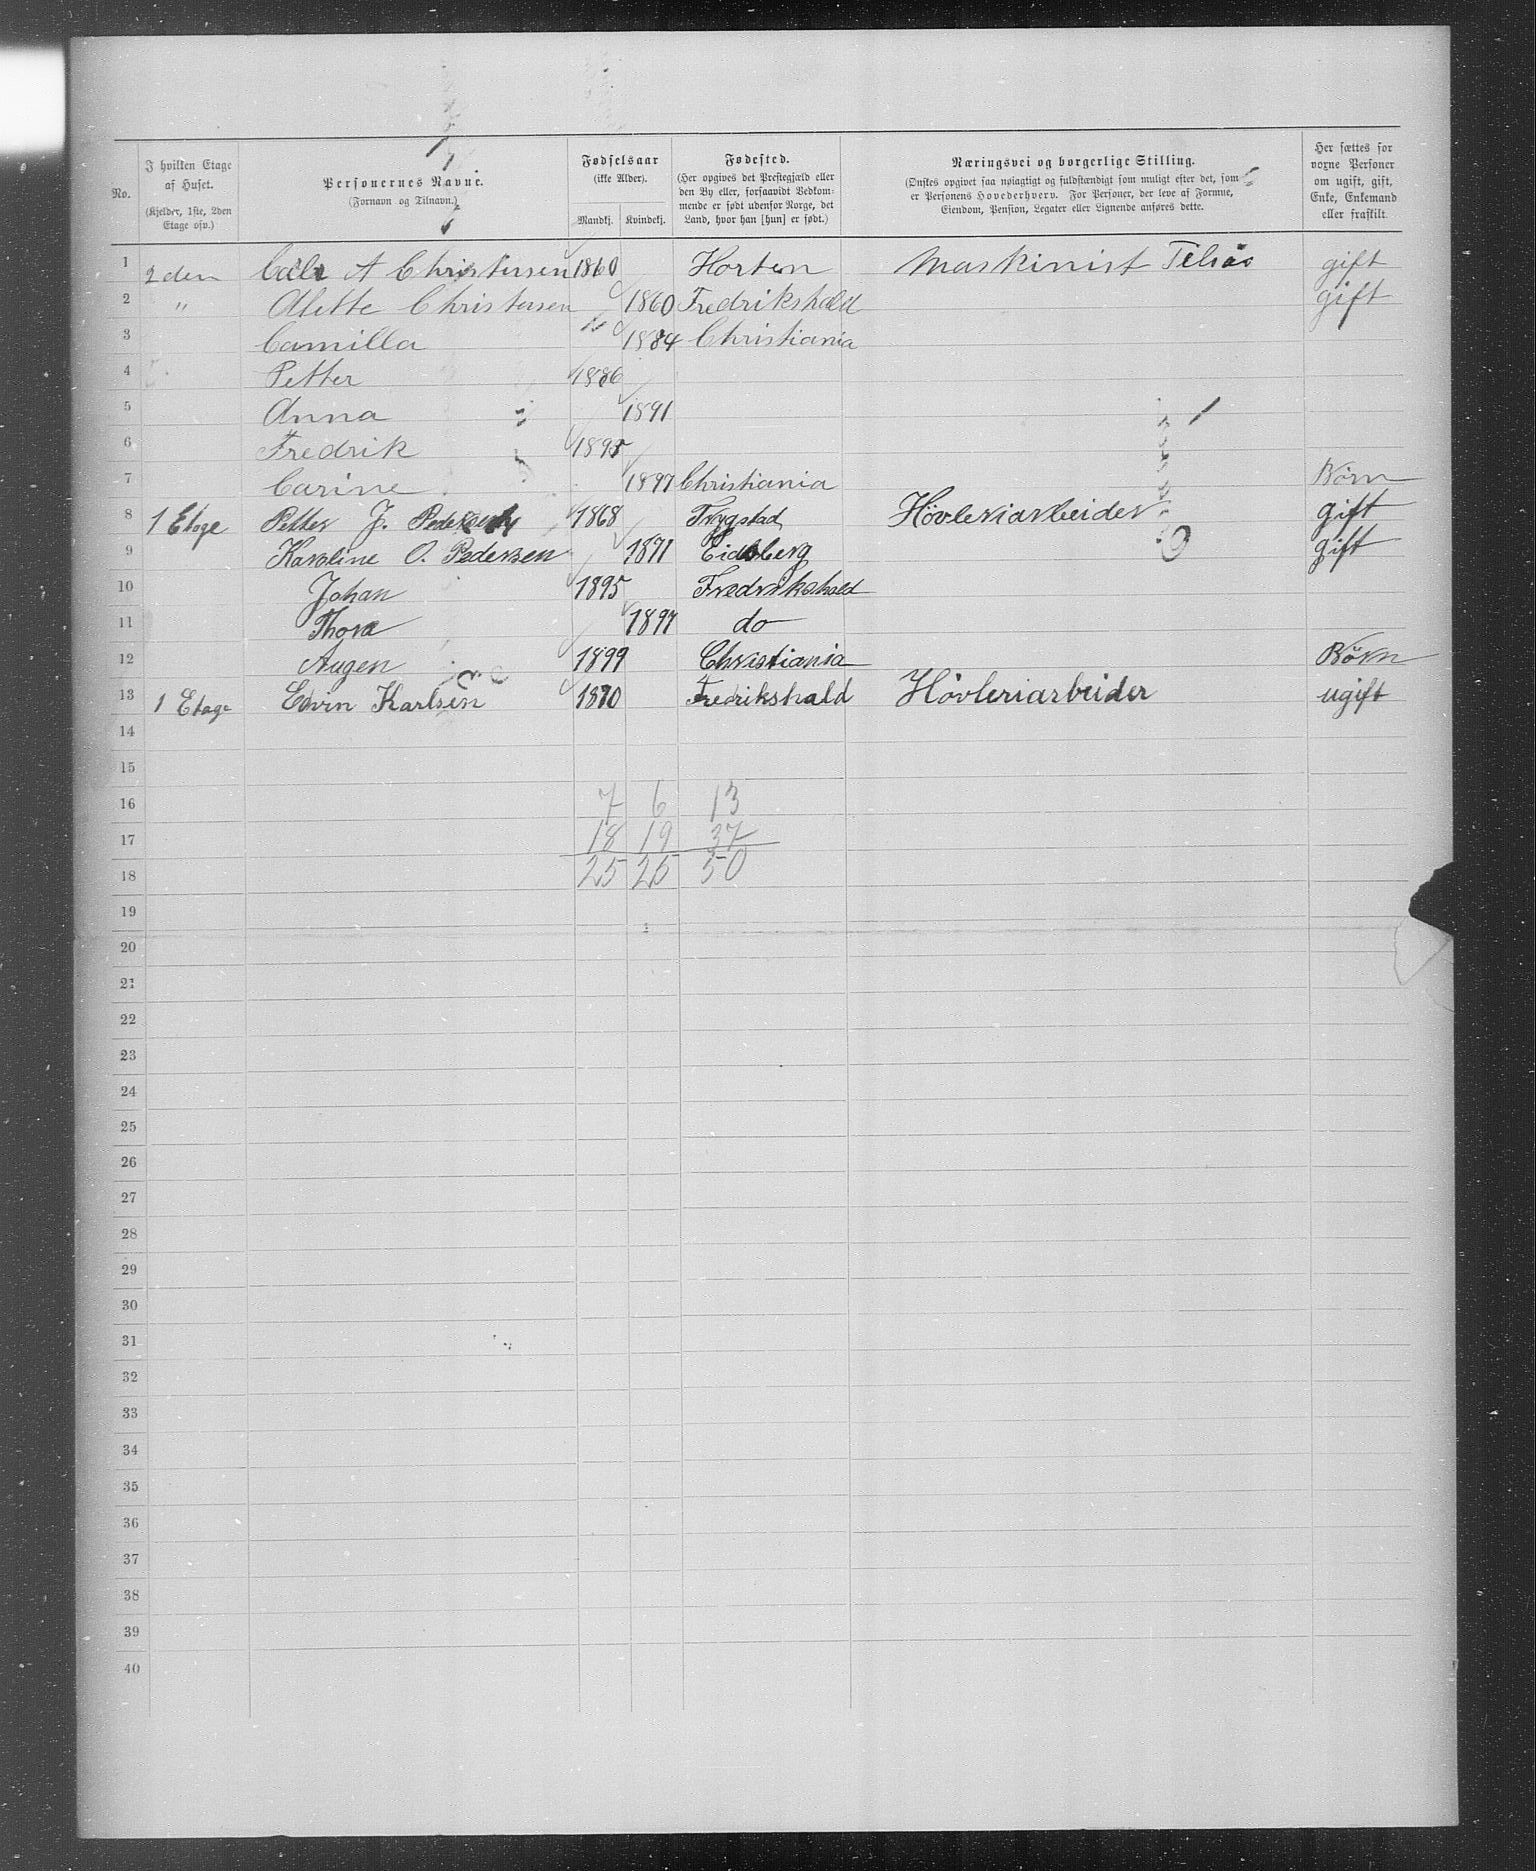 No.
I hvilken Etage af Huset.
(Kjelder, 1ste, 2den Etage osv.)
Personernes Navne.
(Fornavn og Tilnavn.)
Fødselsaar
(ikke Alder).
Mandkj. Kvindekj.
Fødested.
(Her opgives det Prestegjæld eller
den By eller, forsaavidt Vedkom-
mende er født udenfor Norge, det
Land, hvor han [hun] er født.)
Næringsvei og borgerlige Stilling.
(Ønskes opgivet saa nøiagtigt og fuldstændigt som muligt efter det, som
er Personens Hovederhverv. For Personer, der leve af Formue,
Eiendom, Pension, Legater eller Lignende anføres dette.
Her sættes for
voxne Personer
om ugift, gift,
Enke, Enkemand
eller fraskilt.
1 2 den A Christensen 1860 Horten Maskinist gift
2 " Alette Christensen 1860 Fredrikshald gift
3 Camilla 1884 Christiania
4 Petter 1886
5 Anna 1891
6 Fredrik 1895
7 Carine 1897 Christiania Börn
8 1 Etage Petter J. Pedersen 1868 Trygstad Hövleriarbeider gift
9 Karoline O. Pedersen 1871 Eidsberg gift
10 Johan 1895 Fredrikshald
11 Thora 1897 do
12 Augen 1899 Christiania Börn
13 1 Etage Edvin Karlsen 1870 Fredrikshald Hövleriarbeider ugift
14
15
16 7 6 13
17 18 19 37
18 25 25 50
19
20
21
22
23
24
25
26
27
28
29
30
31
32
33
34
35
36
37
38
39
40